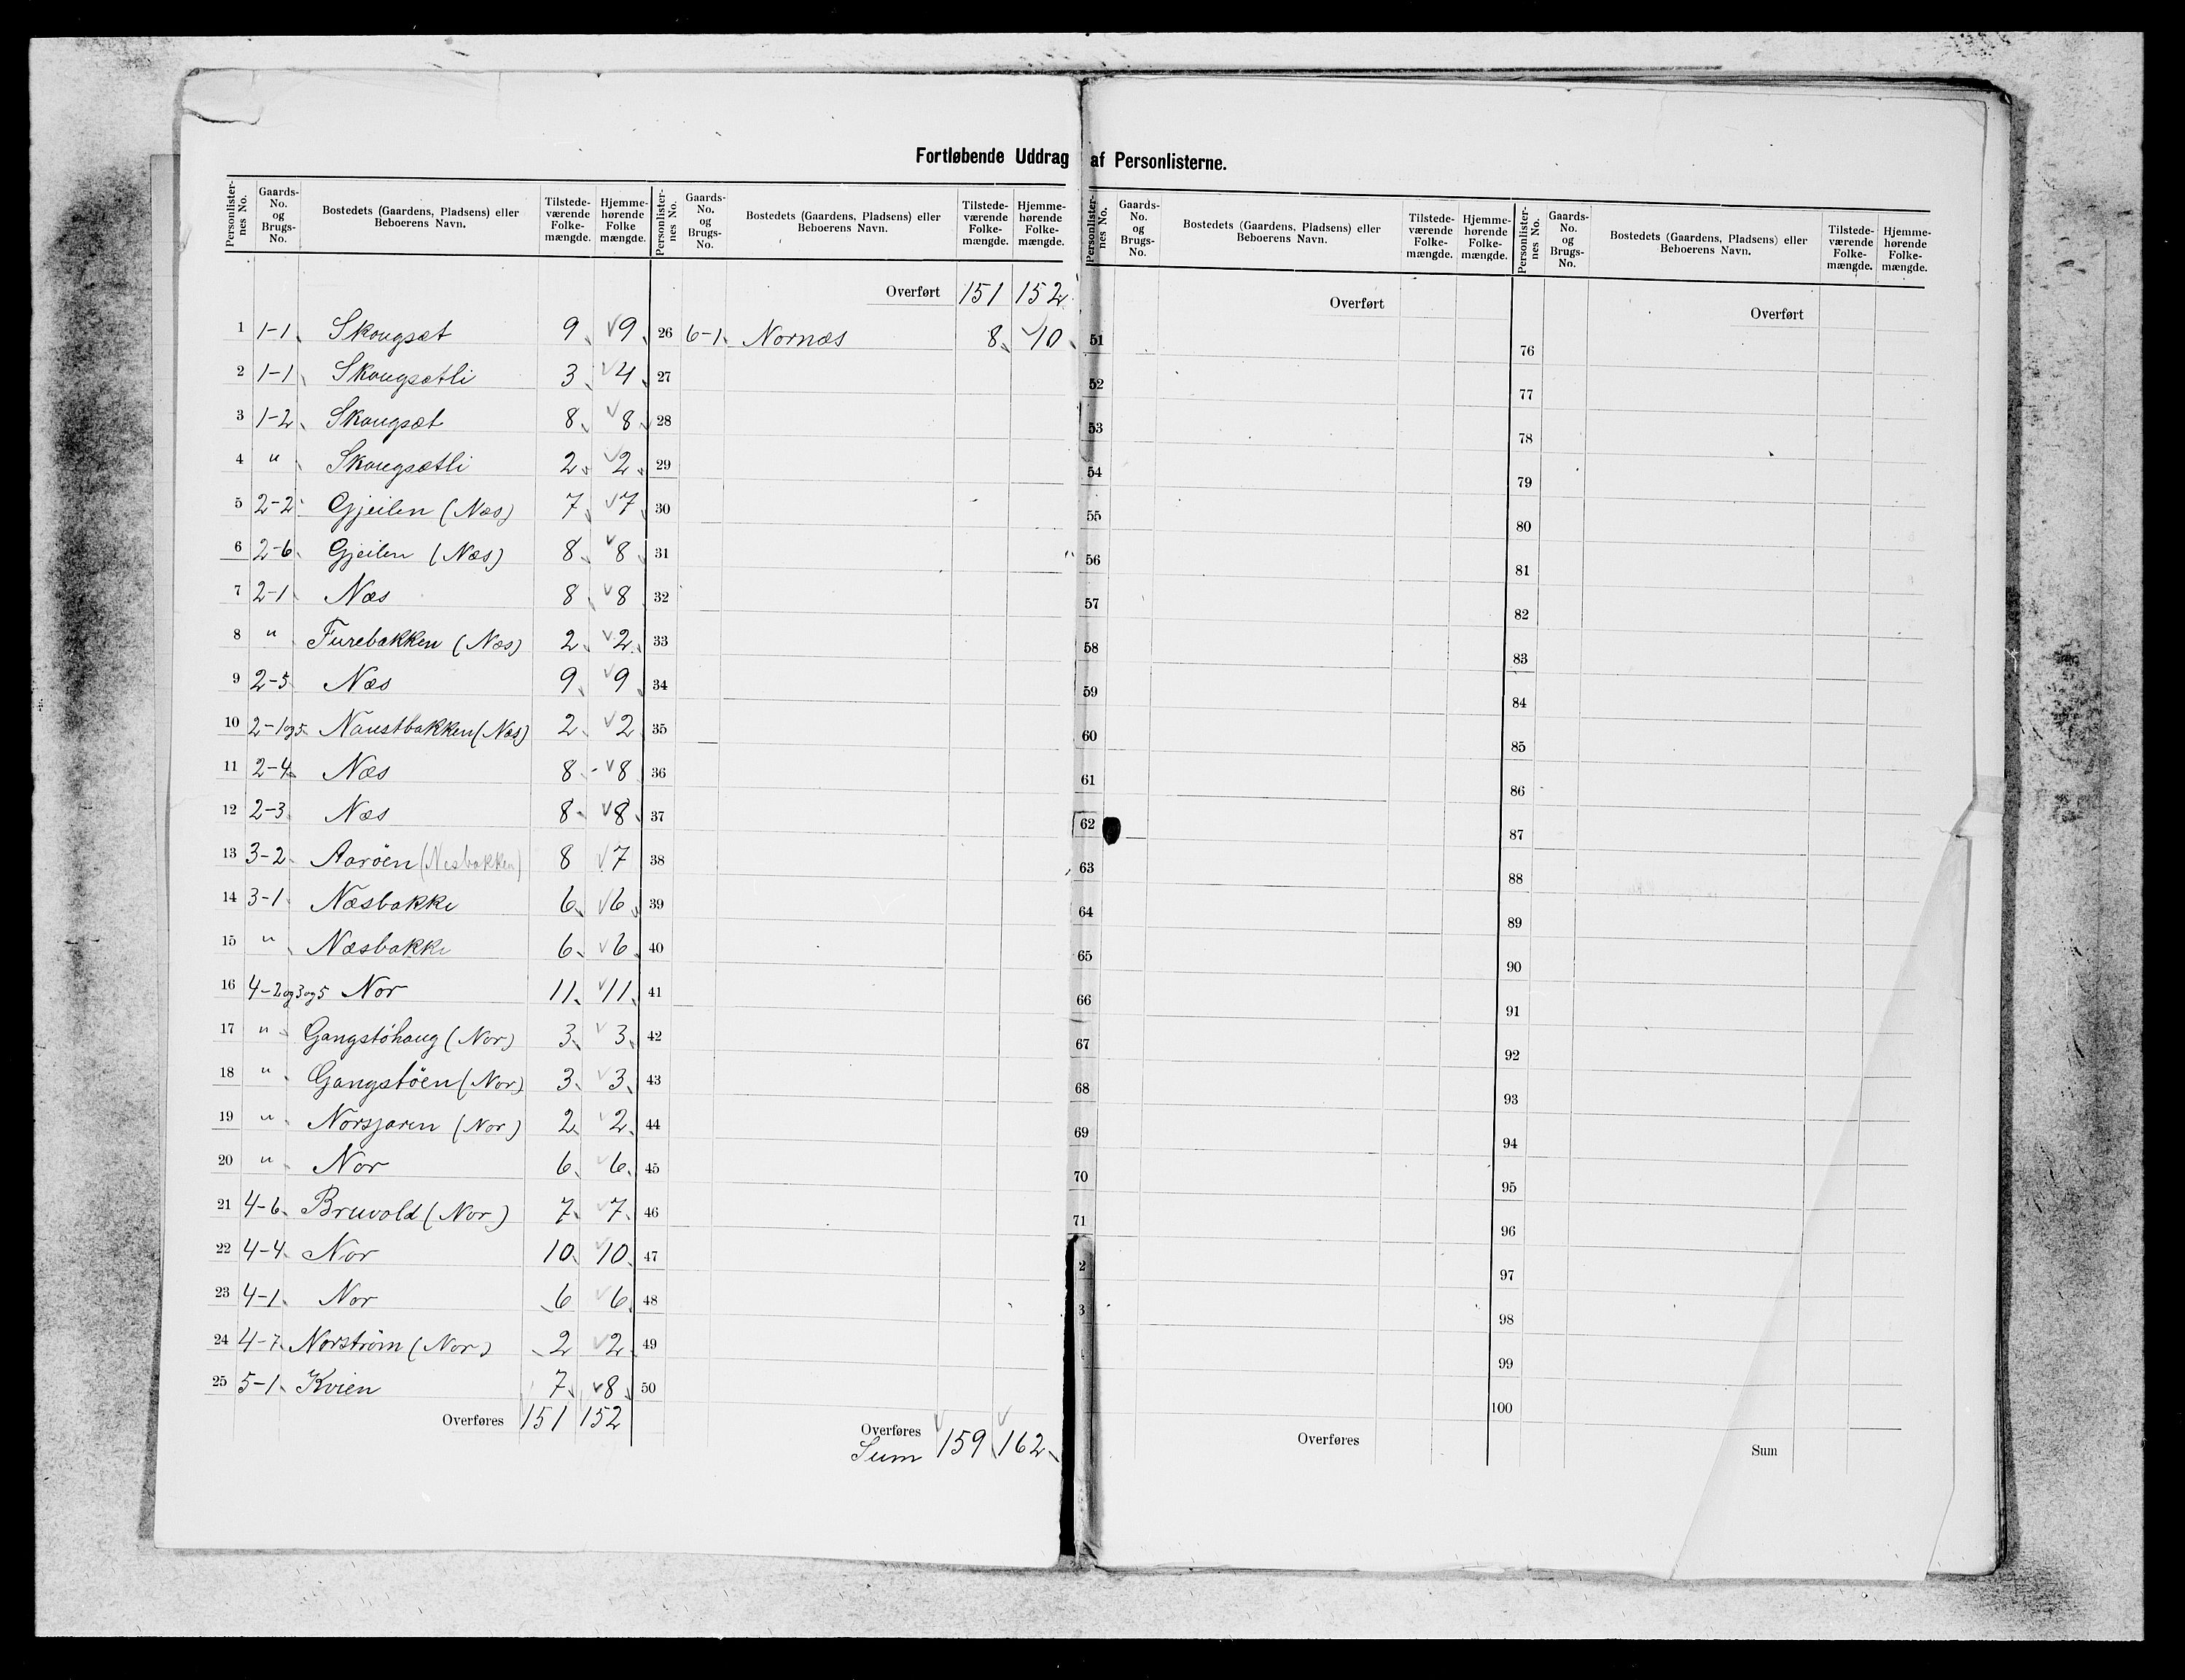 Fortløbende Uddrag af Personlisterne.
Personlisternes No. Gaards-No. og Brugs-No. Bostedets (Gaardens, Pladsens) eller Beboerens Navn. Tilstedeværende Folkemængde. Hjemmehørende Folkemængde.
1 1-1 Skougsæt 9 9
2 1-1 Skougsætli 3 4
3 1-2 Skougsæt 8 8
4 " Skougsætli 2 2
5 2-2 Gjeilen (Næs) 7 7
6 2-6 Gjeilen (Næs) 8 8
7 2-1 Næs 8 8
8 " Furebakken (Næs) 2 2
9 2-5 Næs 9 9
10 2-1og5 Naustbakken (Næs) 2 2
11 2-4 Næs 8 8
12 2-3 Næs 8 8
13 3-2 Aarøen (Nesbakken) 8 7
14 3-1 Næsbakke 6 6
15 " Næsbakke 6 6
16 4-2og3og5 Nor 11 11
17 " Gangstöhaug (Nor) 3 3
18 " Gangstöen (Nor) 3 3
19 " Norsjaren (Nor) 2 2
20 " Nor 6 6
21 4-6 Bruvold (Nor) 7 7
22 4-4 Nor 10 10
23 4-1 Nor 6 6
24 4-7 Norstrøm (Nor) 2 2
25 5-1 Kvien 7 8
Overføres 151 152
Personlisternes No. Gaards-No. og Brugs-No. Bostedets (Gaardens, Pladsens) eller Beboerens Navn. Tilstedeværende Folkemængde. Hjemmehørende Folkemængde.
Overført 151 152
26 6-1 Nornæs 8 10
27
28
29
30
31
32
33
34
35
36
37
38
39
40
41
42
43
44
45
46
47
48
49
50
Overføres
Sum 159 162
Personlisternes No. Gaards-No. og Brugs-No. Bostedets (Gaardens, Pladsens) eller Beboerens Navn. Tilstedeværende Folkemængde. Hjemmehørende Folkemængde.
Overført
51
52
53
54
55
56
57
58
59
60
61
62
63
64
65
66
67
68
69
70
71
2
3
Overføres
Personlisternes No. Gaards-No. og Brugs-No. Bostedets (Gaardens, Pladsens) eller Beboerens Navn. Tilstedeværende Folkemængde. Hjemmehørende Folkemængde.
Overført
76
77
78
79
80
81
82
83
84
85
86
87
88
89
90
91
92
93
94
95
96
97
98
99
100
Sum